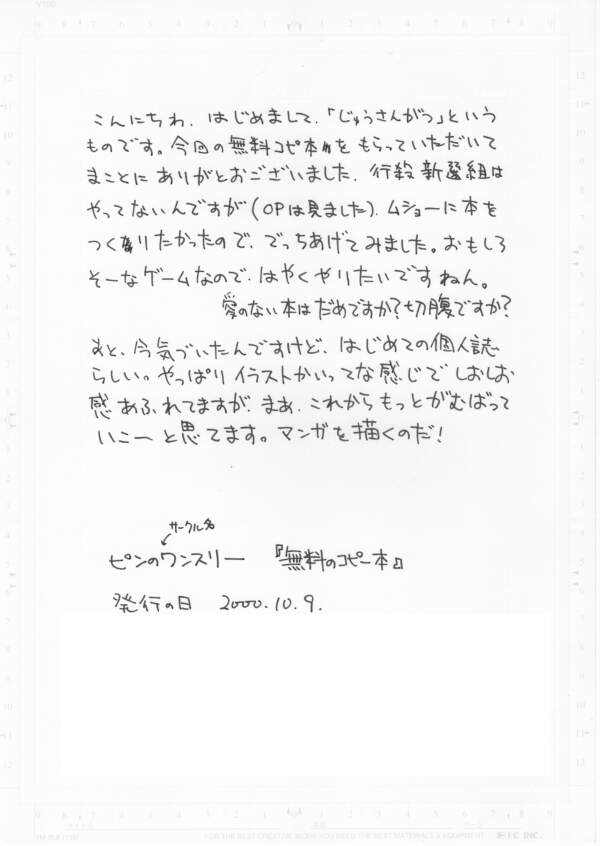 こんにちわ、はじめまして、「じゅうさんがつ」という
ものです。今回の無料コピ本をもらっていただいて
まことにありがとおございました、行殺新選組は
やってないんですが(OPは見ました)、ムショーに本を
つくりたかったので、でっちあげてみました。おもしろ
そーなゲームなので、はやくやりたいですねん。
愛のない本はだめですか?切腹ですか?
あと、今気づいたんですけど、はじめての個人誌
らしい。やっぱりイラストかいってな感じでしおしお
感あふれてますが、まぁ、これからもっとがむばって
いこーと思てます。マンガを描くのだ!
サークル名
ピンのワンスリー 『無料のコピー本』
発行の日 2000.10.9.
FOR THE BEST CREATIVE WORK YOU NEED THE BEST MATERIALS & EQUIPMENT